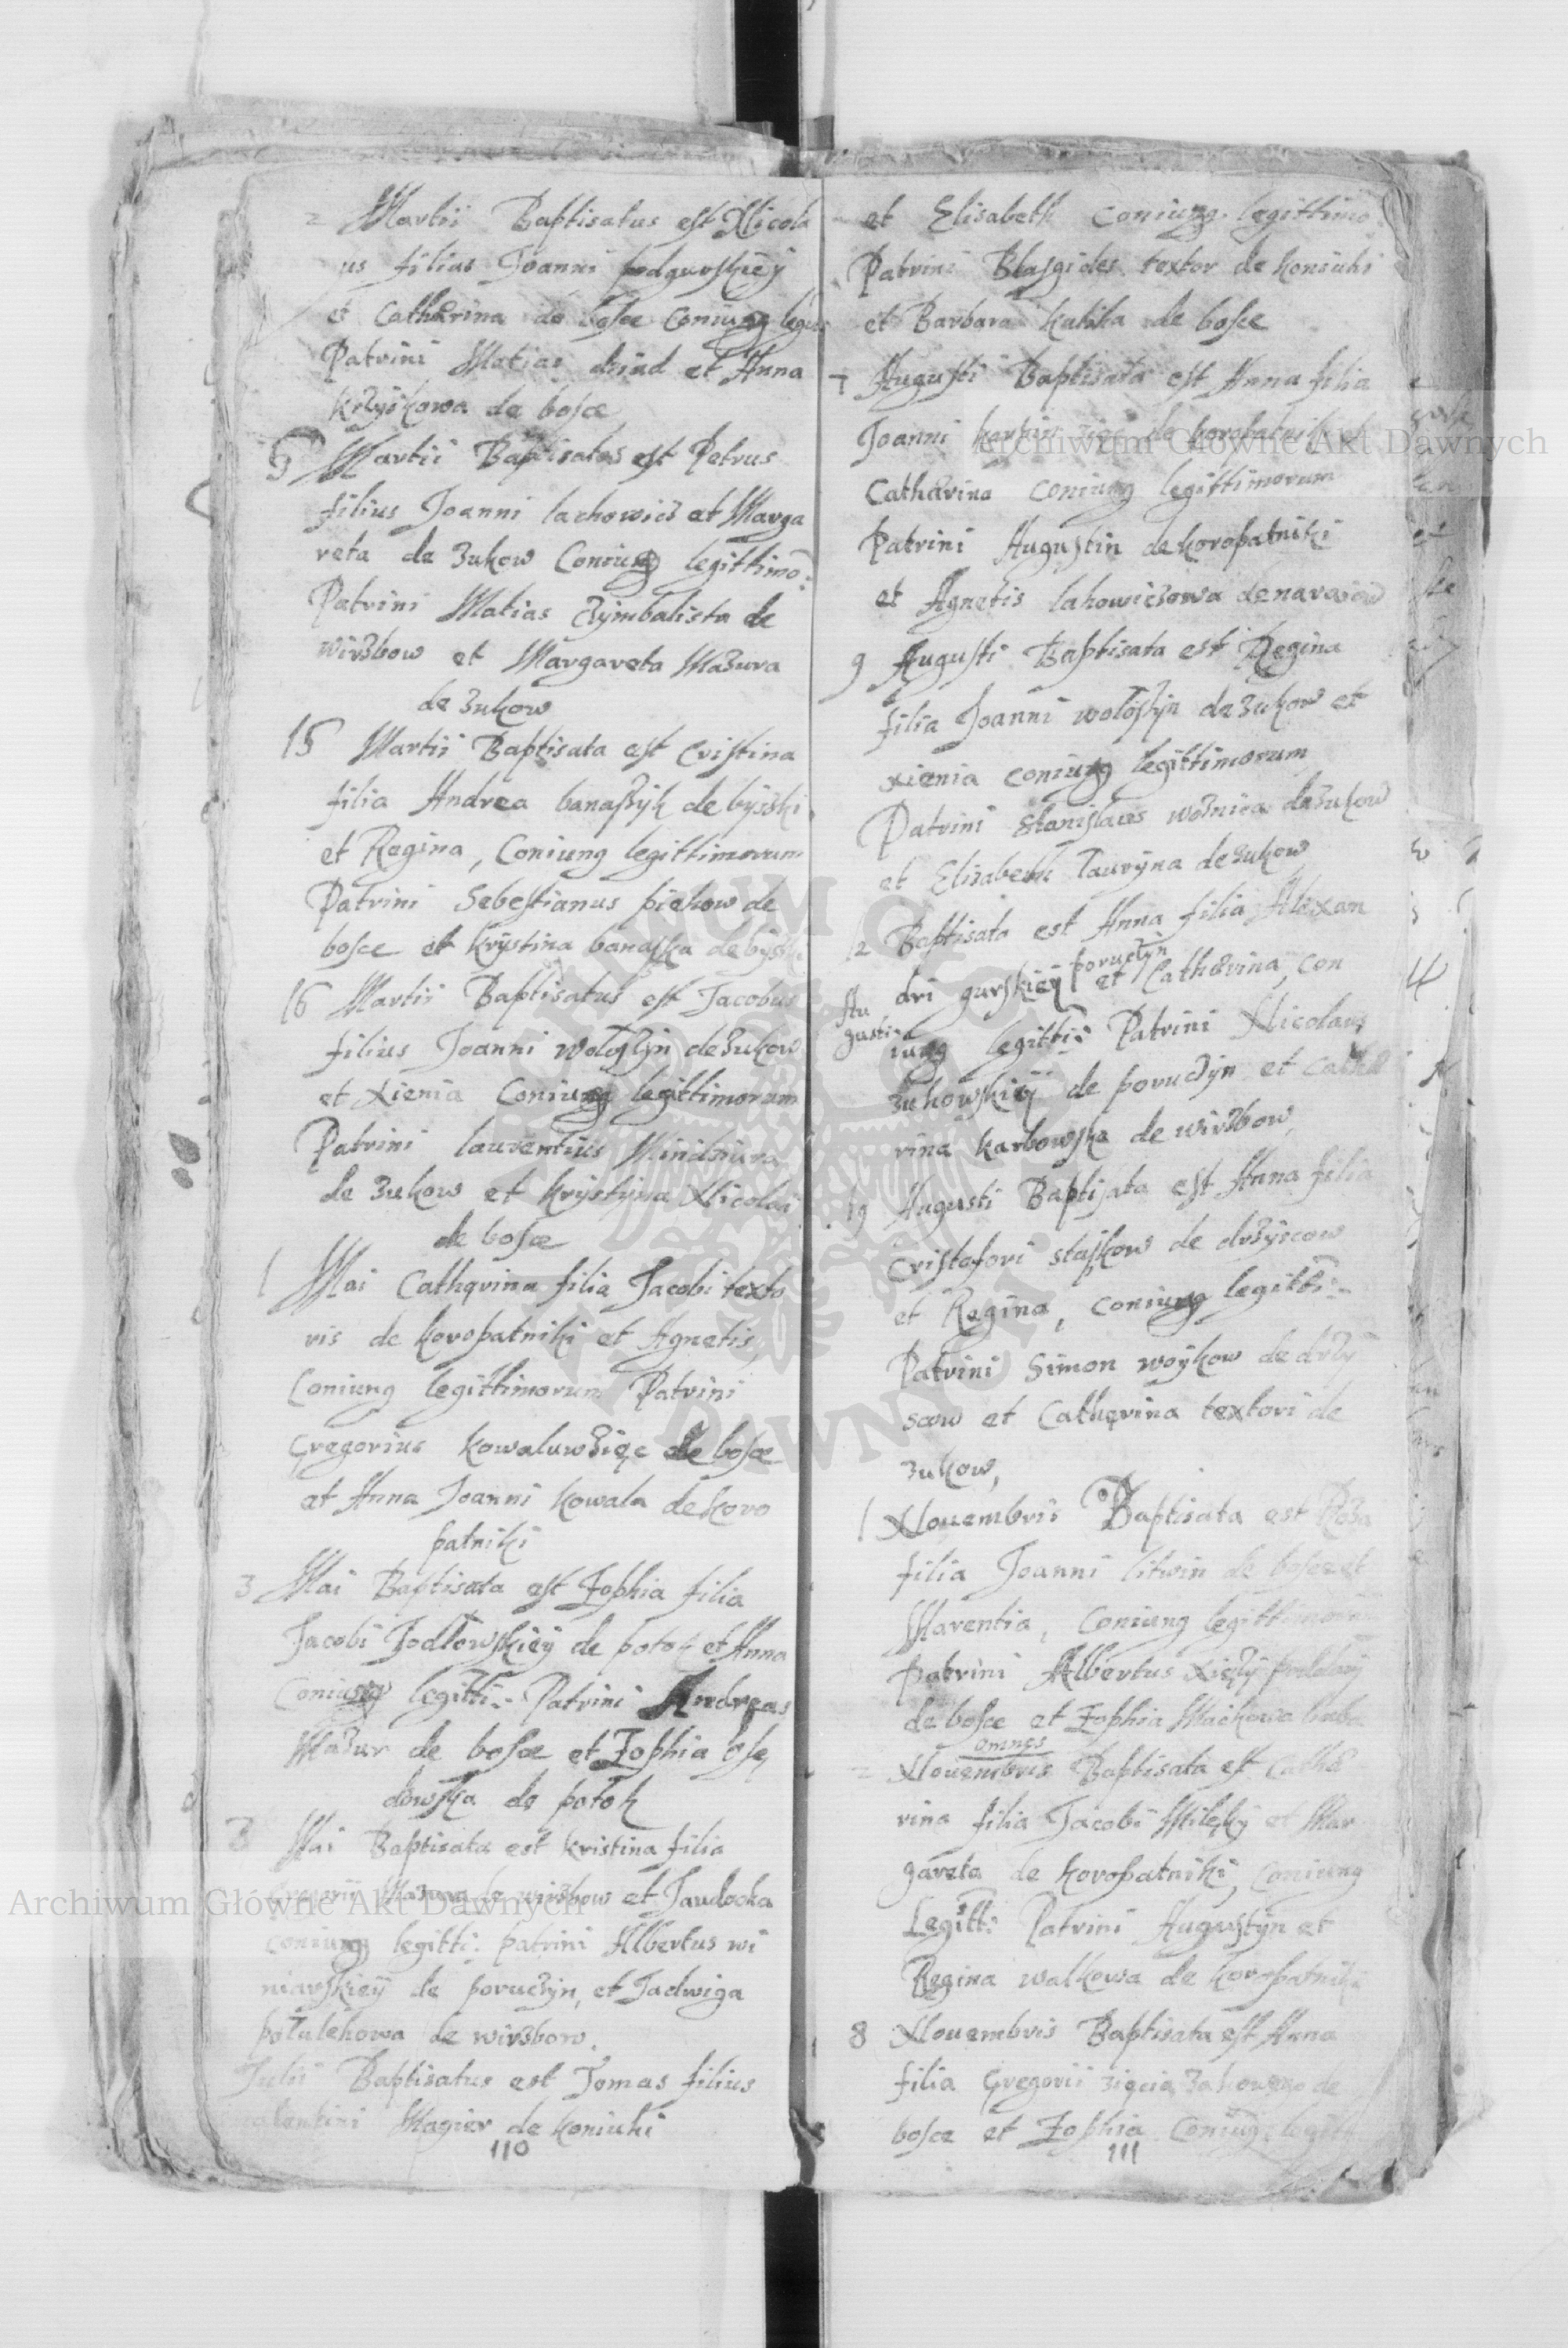 2 Martii Baptisatus est Nicola
us filius Joanni podgurskiey
et Catharina de bosce Coniung legitti
Patrini Matias dziad et Anna
krzyskowa de bosce
5 Martii Baptisatus est Petrus
filius Joanni lachowicz et Marga
reta de zukow Coniung legittimo:
Patrini Matias czymbalista de
wirzbow et Margareta Mazura
de zukow
15 Martii Baptisata est Cristina
filia Andrea banaszyk de byszki
et Regina, Coniung legittimorum
Patrini Sebestianus piekow de
bosce et krystina banaska de byszki
16 Martii Baptisatus est Jacobus
filius Joanni woloszyn de zukow
et Xienia Coniung legittimorum
Patrini laurentius Mindziura
de zukow et krystyna Nicolai
de bosce
1 Mai Catherina filia Jacobi texto
ris de koropatniki et Agnetis,
Coniung legittimorum Patrini
Gregorius kowaluwzięc de bosce
et Anna Joanni kowala de koro
patniki
3 Mai Baptisata est Zophia filia
Jacobi Jodłowskiey de potok et Anna
Coniung legitti: Patrini Andreas
Mazur de bosce et Zophia Ose
dowska de potok
Mai Baptisata est kristina filia
Mazura de wirzbow et Jaudocka
coniung legitti: patrini Albertus wi
niarskiey de poruczyn, et Jadwiga
potulehowa de wirzbow.
Julii Baptisatus est Tomas filius
alentini Magier de koniuhi
110
et Elisabeth coniung legittimo:
Patrini Blasgides textor de koniuhi
et Barbara kalika de bosce
7 Augusti Baptisata est Anna filia
Joanni de koropatniki et
Catharina coniung legittimorum
Patrini Augustin de koropatniki
et Agnetis lahowiczowa de naraiow
9 Augusti Baptisata est Regina
filia Joanni wołoszyn de zukow et
xienia coniung legittimorum
Patrini Stanislaus woznica de zukow
et Elisabeth lauryna de zukow
12 Baptisata est Anna filia Alexan
poruczyn
Au dri gurskiey et Catharina, con
gusti iung legitti: Patrini Nicolaus
zukowskiey de poruczyn et Cathe
rina karbowska de wirzbow,
19 Augusti Baptisata est Anna filia
Cristofori staskow de drzyscow
et Regina, coniung legitti:
Patrini Simon woykow de drzy
scow et Catherina textori de
zukow,
1 Nouembris Baptisata est Roza
filia Joanni litwin de bosce et
Marentia, coniung legittimorum
Patrini Albertus xięzy
de bosce et Zophia Mackowa baba
omnes
2 Nouembris Baptisata est Cathe
rina filia Jacobi Milęky et Mar
gareta de koropatniki, coniung
Legitt: Patrini Augustyn et
Regina walkowa de koropatniki
8 Nouembris Baptisata est Anna
filia Gregorii zięcia zakowego de
bosce et Zophia coniung legitt
111
Archiwum Główne Akt Dawnych
Archiwum Główne Akt Dawnych